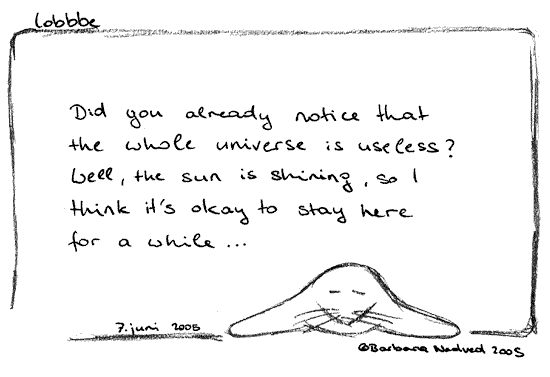 lobbbe
Did you already notice that
the whole universe is useless?
Well, the sun is shining, so I
think it's okay to stay here
for a while ...
7. juni 2005
©Barbara Nedved 2005